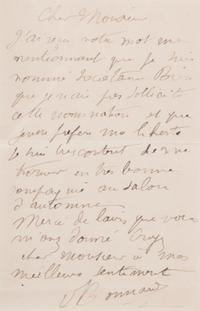 Cher Monsieur
J'ai reçu votre mot me
mentionnant que je suis
nommé secrétaire Bien
que je n'aie pas sollicité
cette nomination et que
je préfère ma liberté
je suis très content de me
trouver en très bonne
compagnie au salon
d'automne
Merci de l'avis que vous
m'avez donné Croyez
cher monsieur à mes
meilleurs sentiments
Bonnard